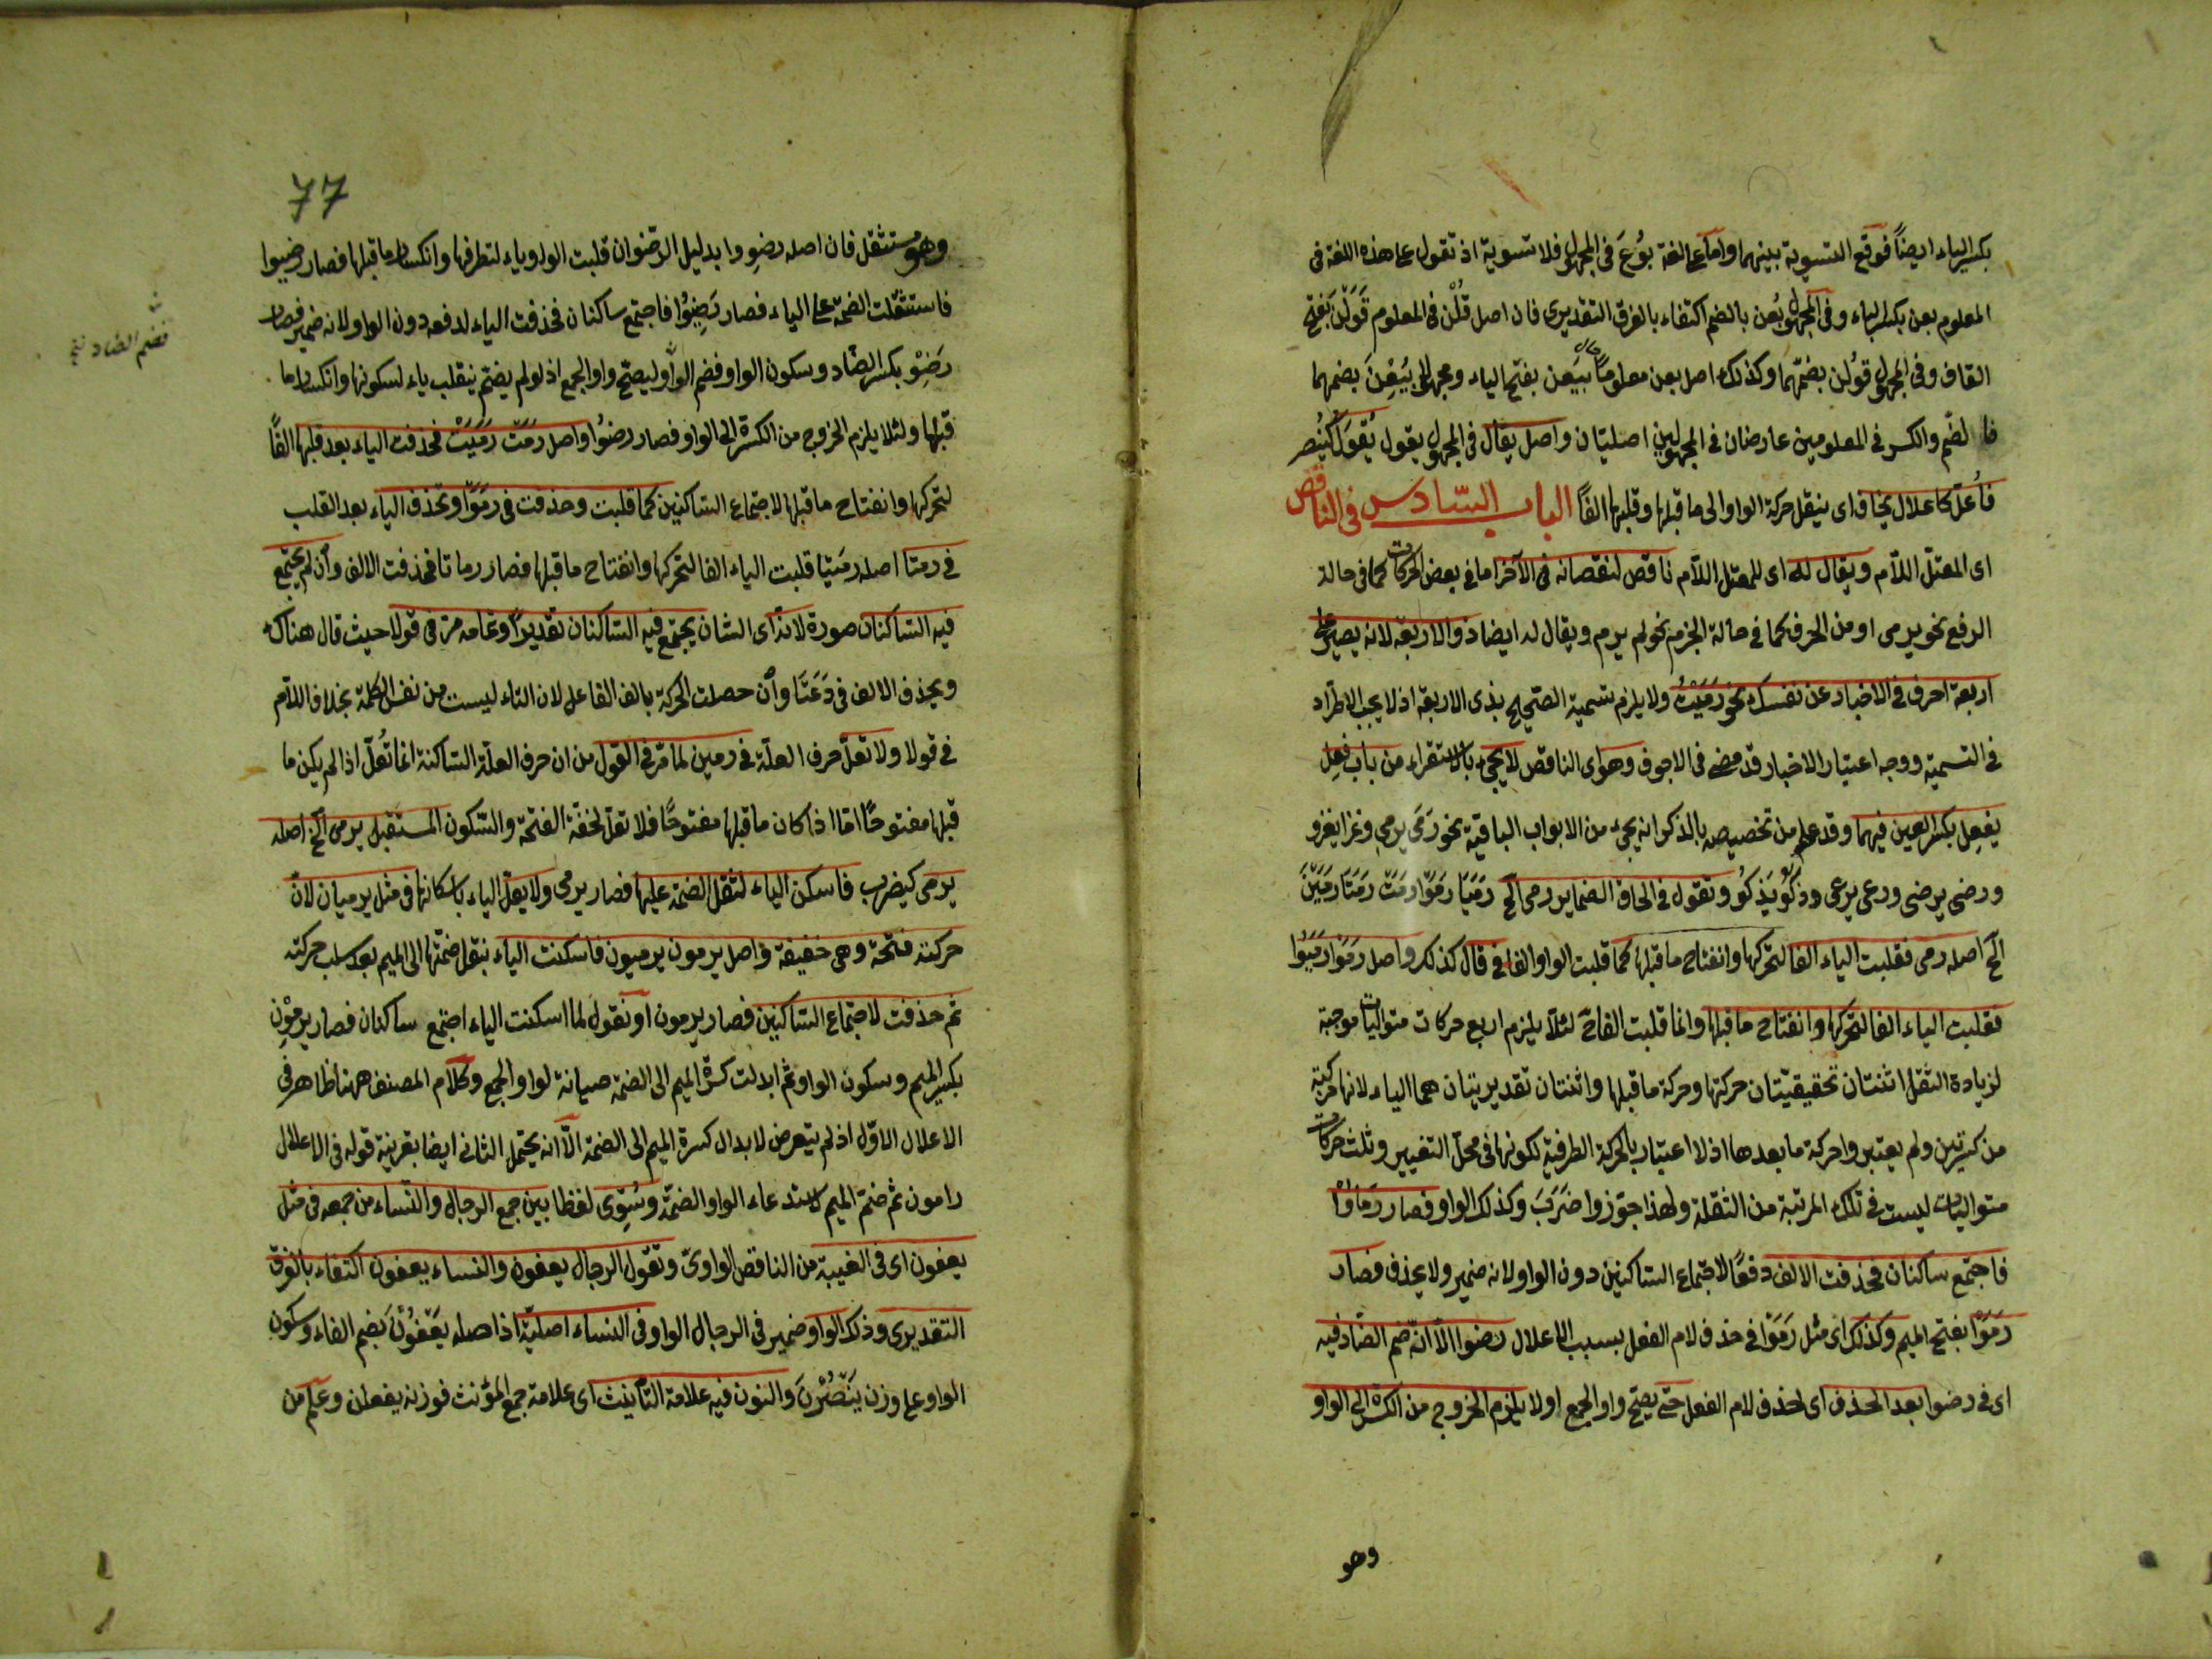 بكسر الياء ايضاً فوقع التسوية بينهما واما على لغة بُوعَ فى المجهول فلا تسوية اذ تقول على هذه اللغة فى
المعلوم بعن بكسر الباء وفى المجهول بُعن بالضم اكتفاء بالفرق التقديرى فان اصل قُلْن فى المعلوم قَوَلْن بفتح
القاف وفى المجهول قوُلن بضمّها وكذلك اصل بعن معلوماً بَيَعن بفتح الياء ومجهولا بُيِعْنَ بضمها
فالضّم والكسر فى المعلومين عارضان فى المجهولين اصليّان واصل يقال فى المجهول يقول يُقْوَلُ كيُنْصر
فأُعلّ كاعلال يخاف اى ينقل حركة الواو الى ما قبلها وقلبها الفاً الباب السّادس فى الناقص
اى المعتلّ اللّام ويقال له اى للمعتل اللّام ناقص لنقصانه فى الآخر اما فى بعض الحركات كما فى حالة
الرفع نحو يرمى او من الحرف كما فى حالة الجزم نحو لم يرم ويقال له ايضا ذو الاربعة لانه يصير على
اربعة احرف فى الاخبار عن نفسك نحو رَمَيْتُ ولا يلزم تسمية الصّحيح بذى الاربعة اذ لا يجب الاطّراد
فى التسمية ووجه اعتبار الاخبار قد مضى فى الاجوف وهو اى الناقص لا يجىء بالاستقراء من باب فعِل
يفعِل بكسر العين فيهما وقد علم من تخصيصه بالذكر انه يجىء من الابواب الباقية نحو رَمَى يرمى وغزا يغزو
ورضى يرضى ورعى يرعى وذكُوَ يَذكُو وتقول فى الحاق الضماير رمى الخ رَمَيَا رَمَوْا رمَتْ رمَتَا رمَيْنَ
الخ اصله رمى فقلبت الياء الفا لتحركها وانفتاح ما قبلها كما قلبت الواو الفا فى قال كذلك واصل رمَوْا رمَيُوا
فقلبت الياء الفا لتحركها وانفتاح ما قبلها وانما قلبت الفا لئلّا يلزم اربع حركات متواليات موجبة
لزيادة الثقل اثنتان تحقيقيّتان حركتها وحركة ما قبلها واثنتان تقديريتان هما الياء لانها مركبة
من كسرتين ولم يعتبروا حركة ما بعدها اذ لا اعتبار بالحركة الطرفية لكونها فى محلّ التغيير وثلث حركات
متواليات ليست فى تلك المرتبة من الثقلة ولهذا جوّزوا ضَرَبَ وكذلك الواو فصار رَمَاوْا
فاجتمع ساكنان فحذفت الالف دفعًا لاجتماع الساكنين دون الواو لانه ضمير ولا يحذف فصار
رَمَوْا بفتح الميم وكذلك اى مثل رمَوْا فى حذف لام الفعل بسبب الاعلال رضوا الّا انّه ضم الضّاد فيه
اى فى رضوا بعد الحذف اى لحذف لام الفعل حتى يصحّ واو الجمع او لا يلزم الخروج من الكسرة الى الواو
وهو
77
وهو مستثقل فان اصله رضِووا بدليل الرّضوان قلبت الواو ياء لتطرفها وانكسار ما قبلها فصار رضيوا
فاستثقلت الضمة على الياء فصار رَضِيْوُا فاجتمع ساكنان فحذفت الياء لدفعه دون الواو لانه ضمير فصار
رَضِوْ بكسر الضّاد وسكون الواو فضم الواو ليصحّ واو الجمع اذ لو لم يضمّ ينقلب ياء لسكونها وانكسار ما
فضم الضاد نخ
قبلها ولئلا يلزم الخروج من الكسرة الى الواو فصار رضوُا واصل رمَتْ رمَيَتْ فحذفت الياء بعد قلبها الفًا
لتحركها وانفتاح ما قبلها لاجتماع الساكنين كما قلبت وحذفت فى رمَوْا وتحذف الياء بعد القلب
فى رمتا اصله رمَيَتا قلبت الياء الفا لتحركها وانفتاح ما قبلها فصار رماتا فحذفت الالف وان لم يجتمع
فيه الساكنان صورة لانه اى الشان يجتمع فيه الساكنان تقديراً وتمامه مرّ فى قولا حيث قال هناك
ويحذف الالف فى دَعَتَا وان حصلت الحركة بالف الفاعل لان التاء ليست من نفس الكلمة بخلاف اللّام
فى قولا ولا تعلّ حرف العلّة فى رمين لما مرّ فى القول من ان حرف العلّة الساكنة انما تُعلّ اذا لم يكن ما
قبلها مفتوحًا امّا اذا كان ما قبلها مفتوحًا فلا تعلّ لخفّة الفتحة والسّكون المستقبل يرمى الخ اصله
يرمى كيضرب فاسكن الياء لثقل الضمة عليها فصار يرمى ولا يعلّ الياء باسكانها فى مثل يرميان لان
حركته فتحة وهى خفيفة واصل يرمون يرميون فاسكنت الياء بنقل ضمّتها الى الميم بعد سلب حركته
ثم حذفت لاجتماع الساكنين فصار يرمون او نقول لما اسكنت الياء اجتمع ساكنان فصار يرمِوْن
بكسر الميم وسكون الواو ثم ابدلت كسرة الميم الى الضمة صيانة لواو الجمع وكلام المصنف ههنا ظاهر فى
الاعلال الاوّل اذ لم يتعرض لابدال كسرة الميم الى الضمة الّا انه يحتمل الثانى ايضا بقرينة قوله فى الاعلال
رامون ثم ضمّ الميم لاستدعاء الواو الضمّة وسُوِّى لفظا بين جمع الرجال والنّساء من جمعه فى مثل
يعفون اى فى الغيبة من الناقص الواوىّ وتقول الرجال يعفون والنساء يعفون اكتفاء بالفرق
التقديرى وذلك الواو ضمير فى الرجال الواو فى النساء اصليّة اذ اصله يَعْفُوْنَ بضم الفاء وسكون
الواو على وزن يَنْصُرْنَ والنون فيه علامة التأنيث اى علامة جمع المؤنث فوزنه يفعلن وعلم من